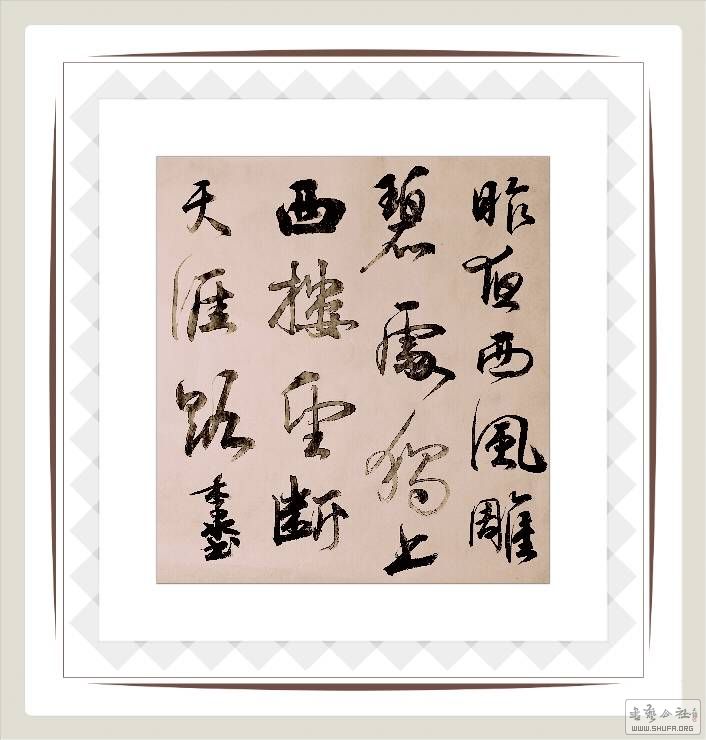 昨夜西風雕
碧處獨上
西樓望斷
天涯路
书艺公社
WWW.SHUFA.ORG